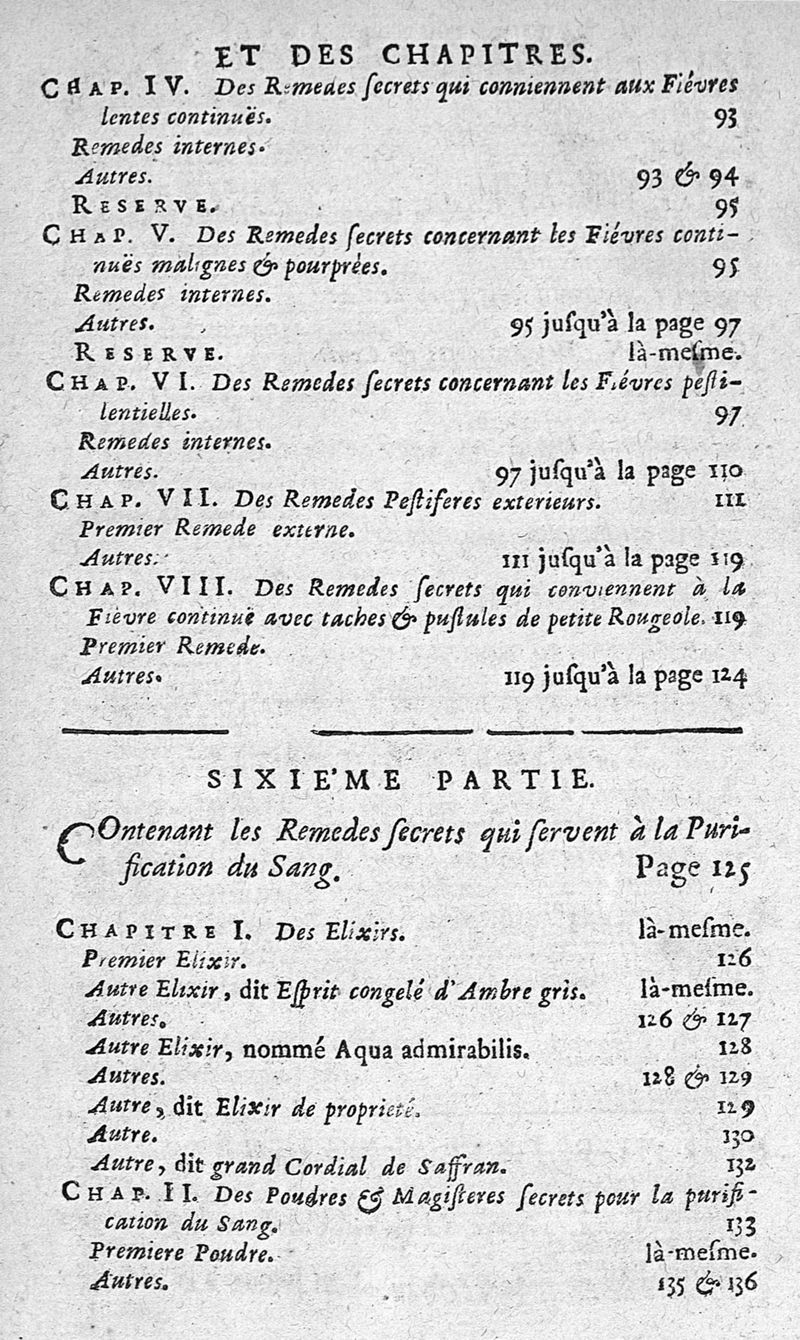 ET DES CHAPITRES.
CHAP. IV. Des Remedes ſecrets qui conniennent aux Fiévres
lentes continuës. 93
Remedes internes.
Autres. 93 & 94
RESERVE. 95
CHAP. V. Des Remedes ſecrets concernant les Fiévres conti-
nuës malignes & pourprées. 95
Remedes internes.
Autres. 95 juſqu'à la page 97
RESERVE. là-meſme.
CHAP. VI. Des Remedes ſecrets concernant les Fiévres peſti-
lentielles. 97
Remedes internes.
Autres. 97 juſqu'à la page 110
CHAP. VII. Des Remedes Peſtiferes exterieurs. 111
Premier Remede externe.
Autres. 111 juſqu'à la page 119
CHAP. VIII. Des Remedes ſecrets qui conviennent à la
Fiévre continuë avec taches & puſtules de petite Rougeole. 119
Premier Remede.
Autres. 119 juſqu'à la page 124
SIXIE'ME PARTIE.
COntenant les Remedes ſecrets qui ſervent à la Puri-
fication du Sang. Page 125
CHAPITRE I. Des Elixirs. là-meſme.
Premier Elixir. 126
Autre Elixir, dit Eſprit congelé d'Ambre gris. là-meſme.
Autres. 126 & 127
Autre Elixir, nommé Aqua admirabilis. 128
Autres. 128 & 129
Autre, dit Elixir de proprieté. 129
Autre. 130
Autre, dit grand Cordial de Saffran. 132
CHAP. II. Des Poudres & Magiſteres ſecrets pour la purifi-
cation du Sang. 133
Premiere Poudre. là-meſme.
Autres. 135 & 136